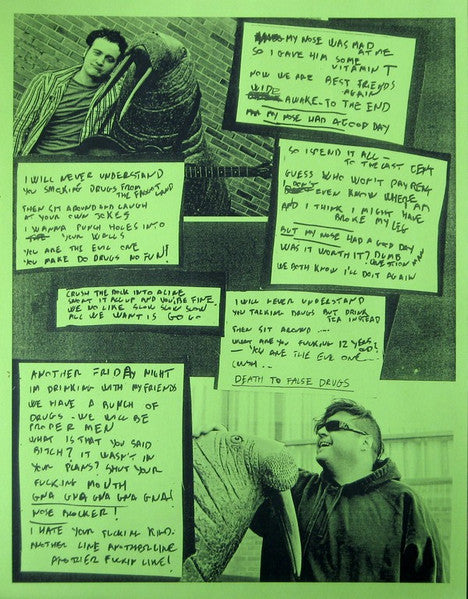 MY NOSE WAS MAD
AT ME
SO I GAVE HIM SOME
VITAMIN T
NOW WE ARE BEST FRIENDS
AGAIN
WIDE
AWAKE - TO THE END
MY NOSE HAD A GOOD DAY
I WILL NEVER UNDERSTAND
YOU SMOKING DRUGS FROM
LAND
THEN SIT AROUND AND LAUGH
AT YOUR OWN JOKES
I WANNA PUNCH HOLES INTO
YOUR WALLS
YOU ARE THE EVIL ONE
YOU MAKE DO DRUGS NO FUN!
SO I SPEND IT ALL -
TO THE LAST CENT
GUESS WHO WON'T PAY RENT
DON'T EVEN KNOW WHERE
I AM
AND I THINK I MIGHT HAVE
BROKE MY LEG
BUT MY NOSE HAD A GOOD DAY
WAS IT WORTH IT? DUMB
QUESTION
WE BOTH KNOW I'LL DO IT AGAIN
CRUSH THE ROCK INTO A LINE
SNORT IT ALL UP AND YOU'RE FINE
WE NO LIKE SLOW SLOW SLOW
ALL WE WANT IS GO GO
I WILL NEVER UNDERSTAND
YOU TALKING DRUGS BUT DRINK
TEA INSTEAD
THEN SIT AROUND ....
WHAT ARE YOU FUCKING 12 YEARS
OLD?
- YOU ARE THE EVIL ONE -
DEATH TO FALSE DRUGS
ANOTHER FRIDAY NIGHT
IM DRINKING WITH MY FRIENDS
WE HAVE A BUNCH OF
DRUGS - WE WILL BE
PROPER MEN
WHAT IS THAT YOU SAID
BITCH? IT WASN'T IN
YOUR PLANS? SHUT YOUR
FUCKING MOUTH
GNA GNA GNA GNA GNA!
NOSE BLOCKER!
I HATE YOUR FUCKING KIND.
ANOTHER LINE ANOTHER LINE
ANOTHER FUCKIN LINE!